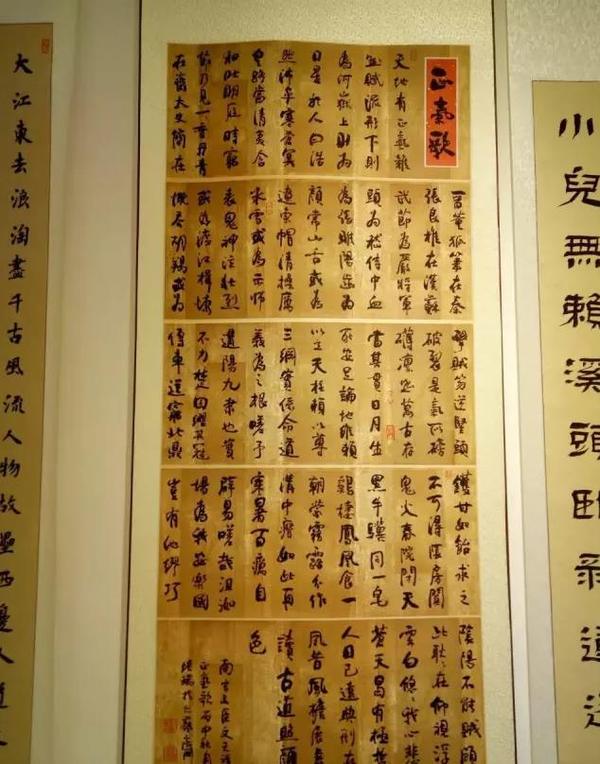 小兒無賴溪頭臥剝蓮
正氣歌
天地有正氣雜
然賦流形下則
為河嶽上則為
日星於人曰浩
然沛乎塞蒼冥
皇路當清夷含
和吐明庭時窮
節乃見一垂丹青
在齊太史簡在
晉董狐筆在秦
張良椎在漢蘇
武節為嚴將軍
頭為嵇侍中血
為張睢陽齒為
顏常山舌或為
遼東帽清操厲
冰雪或為出師
表鬼神泣壯烈
或為渡江楫慷
慨吞胡羯或為
擊賊笏逆豎頭
破裂是氣所磅
礴凜然萬古存
當其貫日月生
死安足論地維賴
以立天柱賴以尊
三綱實係命道
義為之根嗟予
遘陽九隸也實
不力楚囚纓其冠
傳車送窮北鼎
鑊甘如飴求之
不可得陰房闃
鬼火春院閉天
黑牛驥同一皂
鷄棲鳳凰食一
朝蒙霧露分作
溝中瘠如此再
寒暑百癘自
辟易嗟哉沮洳
場為我安樂國
豈有他繆巧
陰陽不能賊顧
此耿耿在仰視浮
雲白悠悠我心悲
蒼天曷有極哲
人日已遠典刑在
夙昔風簷展書
讀古道照顏
色
文天祥
正氣歌丙申秋月
大江東去浪淘盡千古風流人物故壘西邊人道是